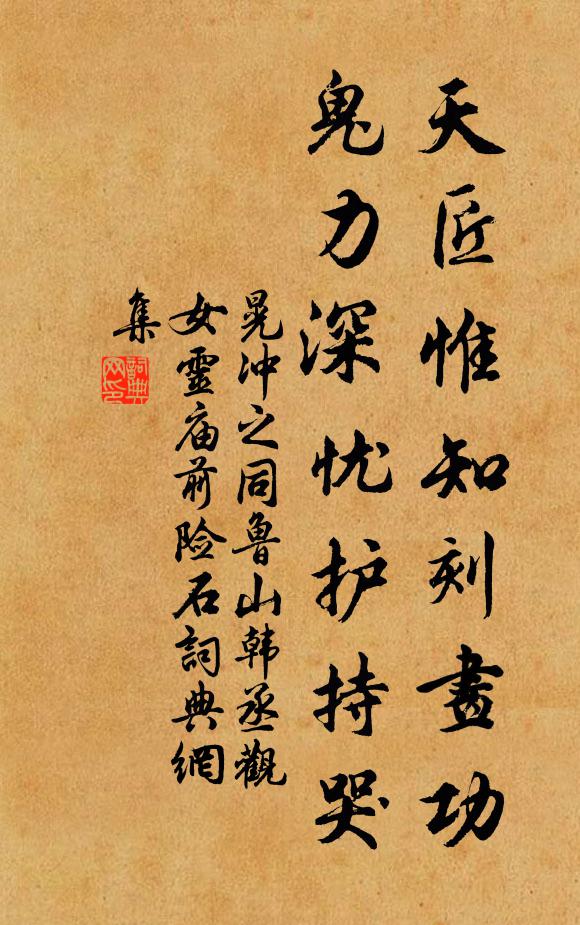 天匠惟知刻畫功
鬼力深忧护持哭
晃冲之同鲁山韩丞觀
女靈庙前险石詞典網
集
詞典
网印